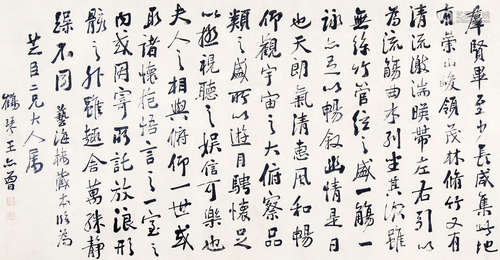 群賢畢至少長咸集此地
有崇山峻領茂林脩竹又有
清流激湍映帶左右引以
為流觴曲水列坐其次雖
無絲竹管絃之盛一觴一
詠亦足以暢敘幽情是日
也天朗氣清惠風和暢
仰觀宇宙之大俯察品
類之盛所以遊目騁懷足
以極視聽之娛信可樂也
夫人之相與俯仰一世或
取諸懷抱語言一室之
內或因寄所託放浪形
骸之外雖趣舍萬殊靜
躁不同 藝海樓藏本臨為
二兄大人屬
鶴琴王亦曾